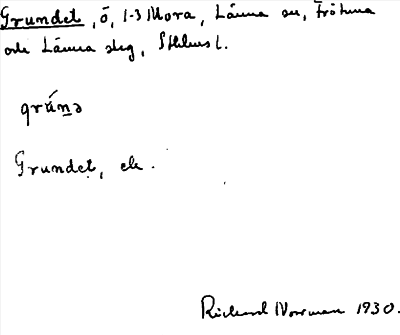 Grundet, ö, 1-3 Mora, Länna sn, Frötuna
och Länna slg, Sthlms l.
grún̲ə
Grundet, ek.
Rickard Norrman 1930.